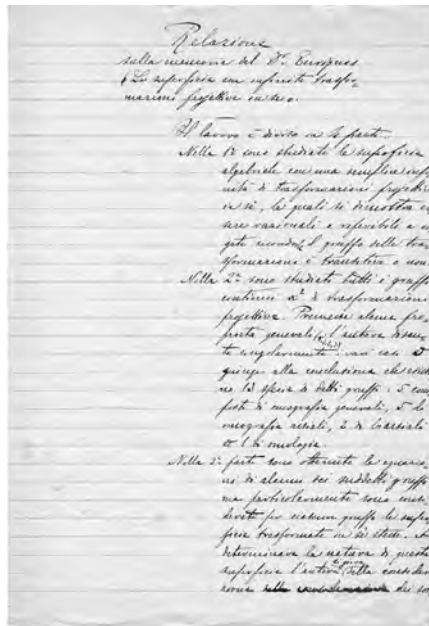 Relazione
sulla memoria del Dr. Enriques
"Le superficie con infinite trasfor-
mazioni projettive in se".
Il lavoro è diviso in 4 parti.
Nella 1ª sono studiate le superficie
algebriche con una semplice infi
nità di trasformazioni projettiv
in sè, le quali si dimostra es
sere razionali o riferibili a
gate secondo il gruppo delle tras
sformazioni è transitivo o non.
Nella 2ª sono studiati tutti i gruppi
continui ∞² di trasformazioni
projettive. Premesse alcune pro
prietà generali, l'autore discu
te singolarmente i vari casi e
giunge alla conclusione che
no 13 specie di detti gruppi: 5 com
posti di omografie generali, 5 di
omografie assiali, 2 di biassiali
e 1 di omologie.
Nella 3ª parte sono ottenute le equazio
ni di alcuni dei suddetti gruppi
ma particolarmente sono consi
derate per ciascun gruppo le super
ficie trasformate in sè stesse. A
determinare la natura di queste
superficie l'autore si giova della consider
zione dei